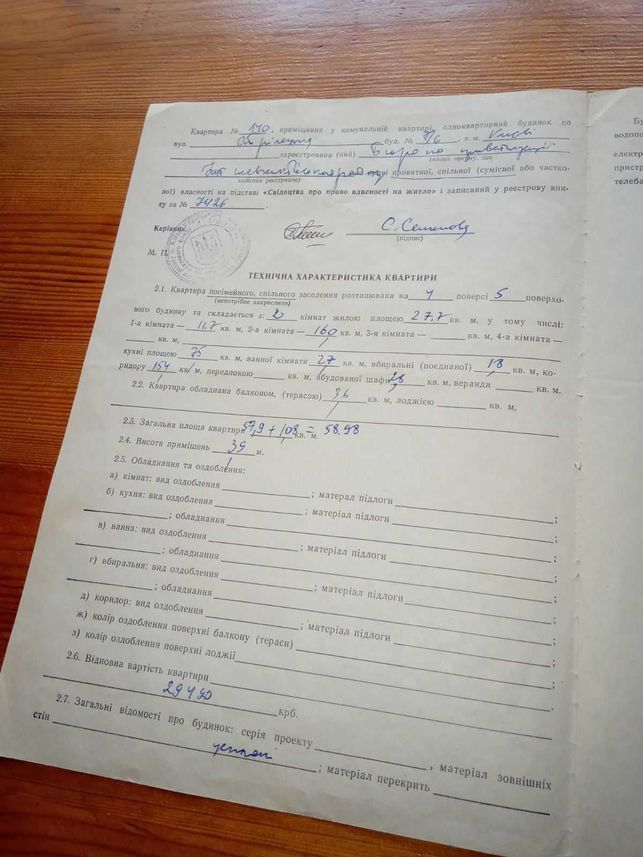 Квартира № 140, приміщення у комунальній квартирі, одноквартирний будинок по
вул. буд. № 7/6, в м. Києві
зареєстрована (ний) Бюро по приватизації
(назва органу, що
праві приватної, спільної (сумісної або частко-
здійснив реєстрацію)
вої) власності на підставі «Свідоцтва про право власності на житло» і записаний у реєстрову кни-
гу за № 7426
Керівник С. Семенова
(підпис)
М. П.
ТЕХНІЧНА ХАРАКТЕРИСТИКА КВАРТИРИ
2.1. Квартира посімейного, спільного заселення розташована на 4 поверсі 5 поверхо-
(непотрібне закреслити)
вого будинку та складається з: 2 кімнат жилою площею 27.7 кв. м, у тому числі:
1-а кімната — 11.7 кв. м, 2-а кімната — 16,0 кв. м, 3-я кімната — кв. м, 4-а кімната —
кв. м,
кухні площею 7,5 кв. м, ванної кімнати 2,7 кв. м, вбиральні (поєднаної) 1,8 кв. м, ко-
ридору 15,4 кв. м, передпокою кв. м, вбудованої шафи 2,8 кв. м, веранди кв. м,
2.2. Квартира обладнана балконом, (терасою) 3,6 кв. м, лоджією кв. м,
2.3. Загальна площа квартири 57,9 + 1,08 = 58,98
кв. м.
2.4. Висота приміщень 3,9 м.
2.5. Обладнання та оздоблення:
а) кімнат: вид оздоблення ; матерал підлоги ;
б) кухня: вид оздоблення ; матеріал підлоги
; обладнання ;
в) ванна: вид оздоблення ; матеріал підлоги
; обладнання ;
г) вбиральня: вид оздоблення ; матеріал підлоги
; обладнання ;
д) коридор: вид оздоблення ; матеріал підлоги ;
ж) колір оздоблення поверхні балкону (терасн) ;
з) колір оздоблення поверхні лоджії ;
2.6. Відновна вартість квартири .
29490 крб.
2.7. Загальні відомості про будинок: серія проекту , матеріал зовнішніх
стін ; матеріал перекрить
Бу
водопо
електр
пристр
телеба